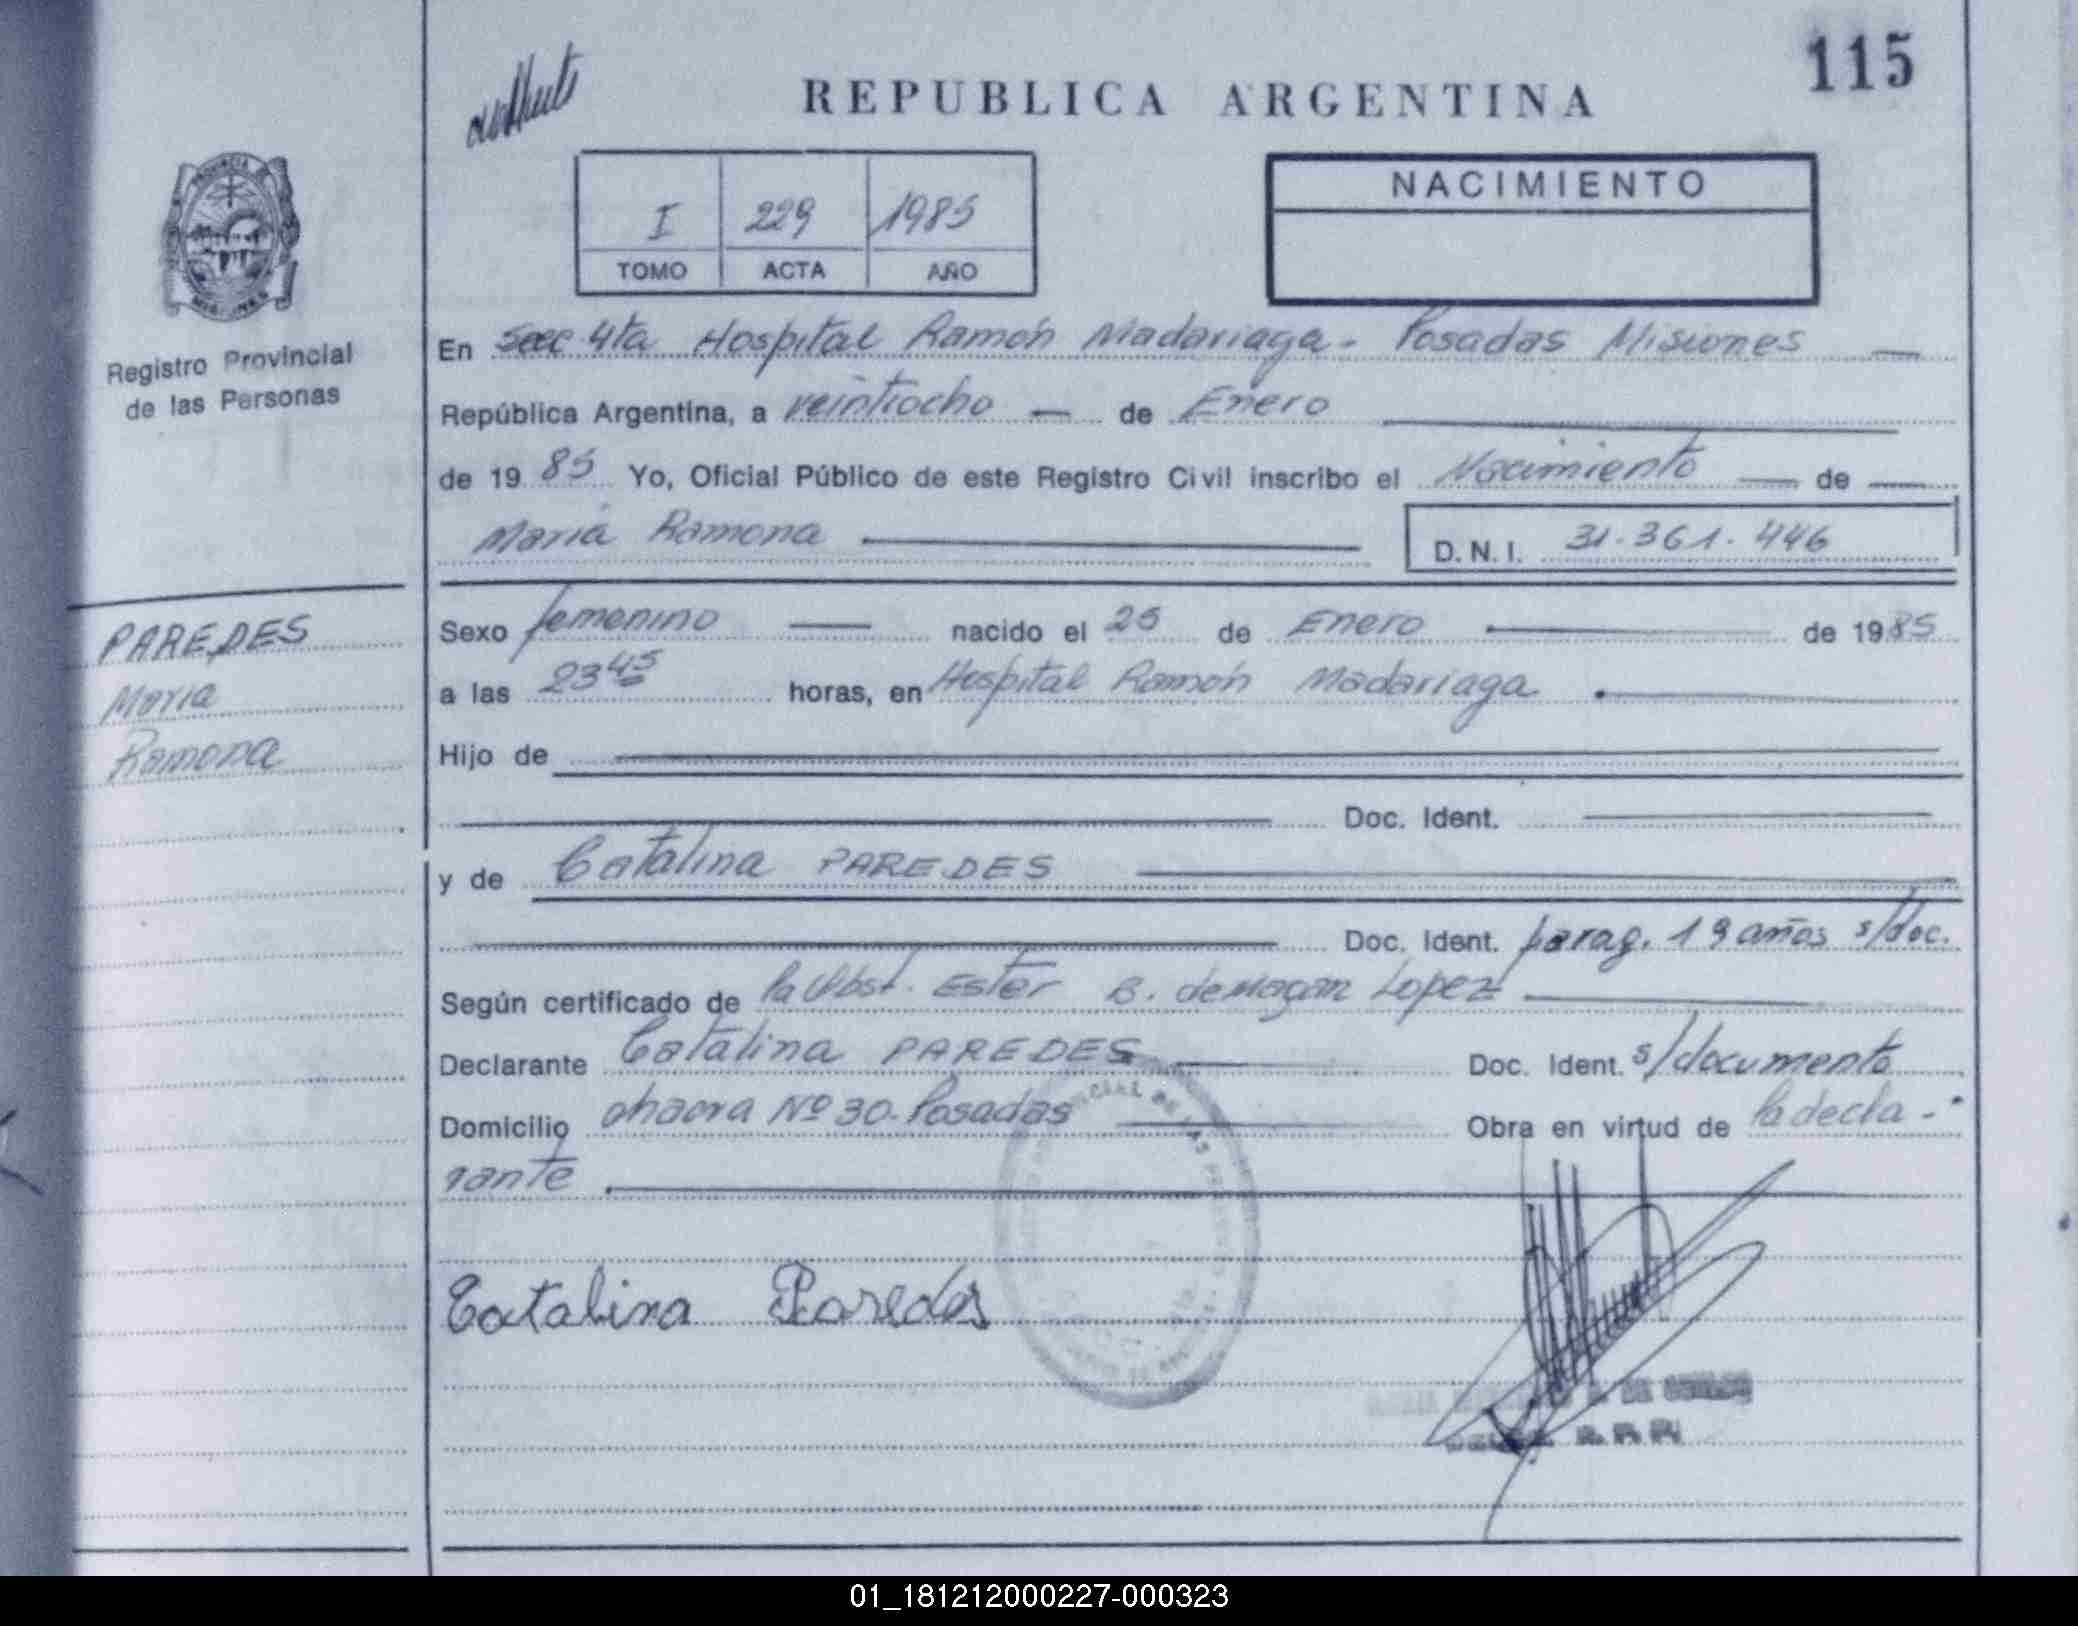 115
REPUBLICA ARGENTINA
I 229 1985
TOMO ACTA AÑO
NACIMIENTO
PROVINCIA
MISIONES
Registro Provincial
de las Personas
En Secc 4ta Hospital Ramón Madariaga - Posadas Misiones —
República Argentina, a veintiocho — de Enero
de 19 85 Yo, Oficial Público de este Registro Civil inscribo el Nacimiento — de —
María Ramona
D.N.I. 31.361.446
PAREDES
María
Ramona
Sexo femenino — nacido el 25 de Enero — de 1985
a las 23 45 horas, en Hospital Ramón Madariaga .
Hijo de
Doc. Ident.
y de Catalina PAREDES
Doc. Ident. parag. 19 años s/doc.
Según certificado de la Obst. Ester B. de Lopez
Declarante Catalina PAREDES — Doc. Ident. s/documento
Domicilio chacra Nº 30. Posadas — Obra en virtud de la decla-
rante
Catalina Paredes
01_181212000227-000323